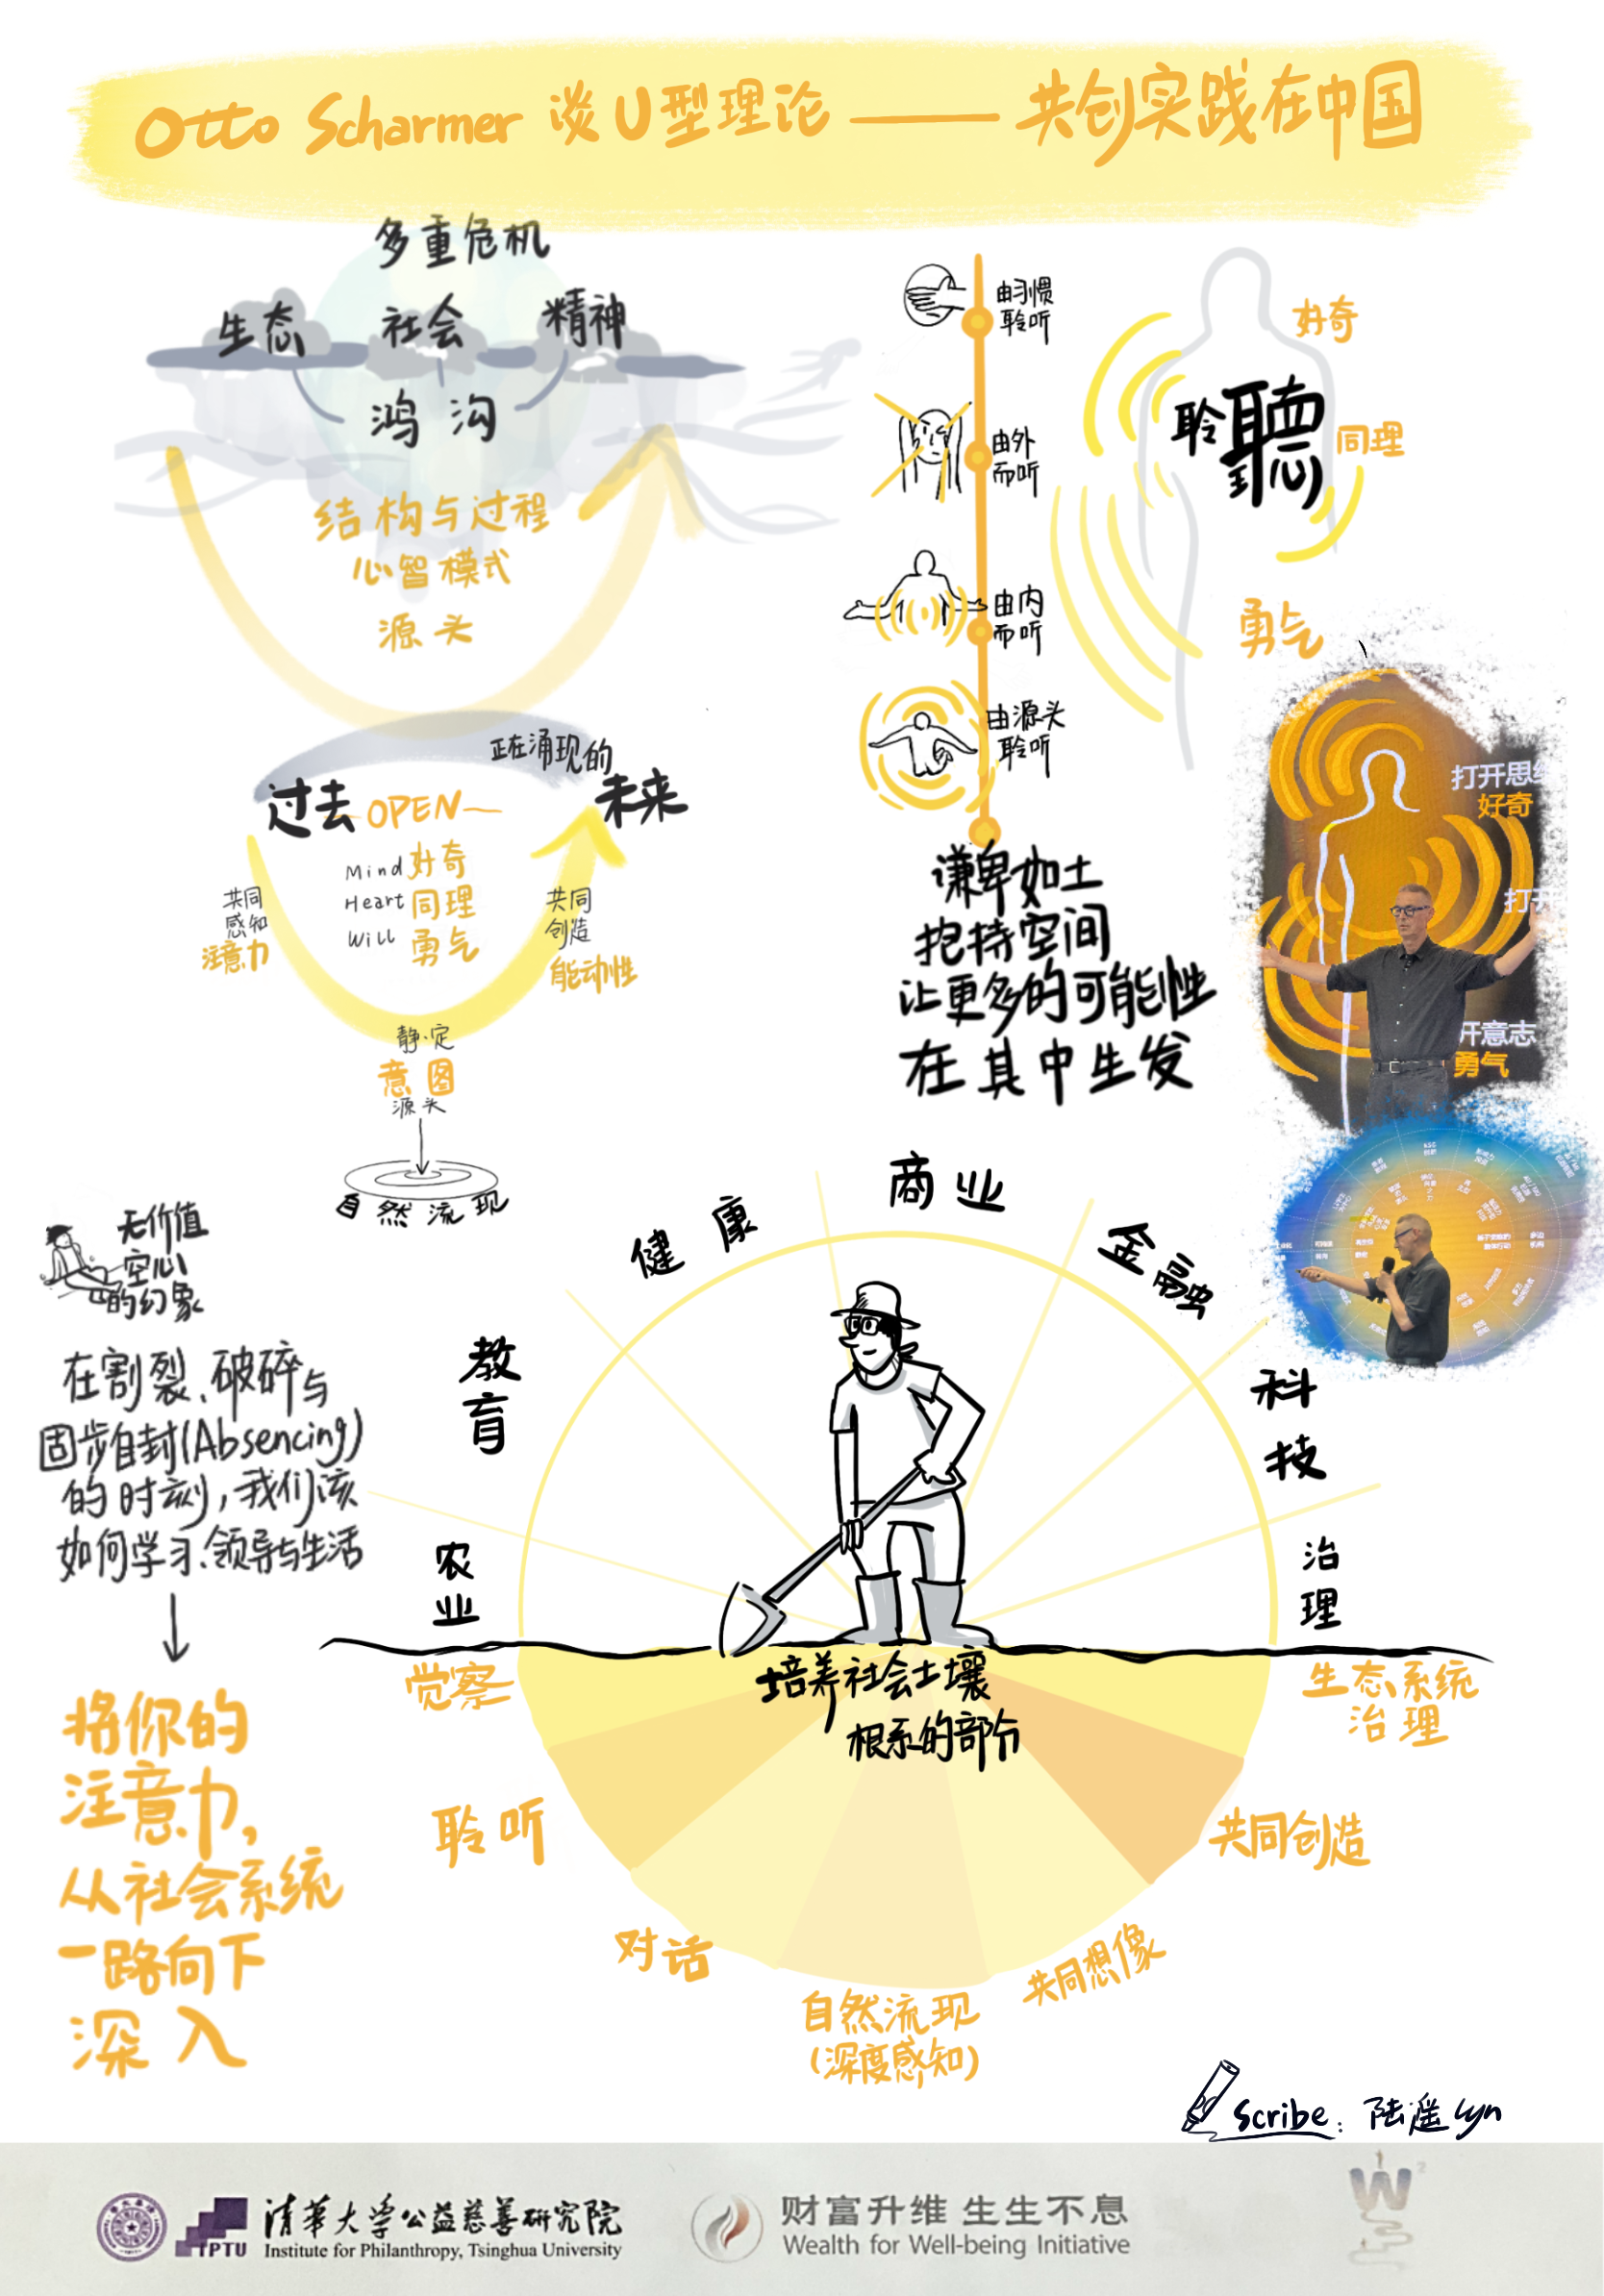 Otto Scharmer 谈U型理论 —— 共创实践在中国
多重危机
生态 社会 精神
鸿沟
结构与过程
心智模式
源头
过去
OPEN
正在涌现的
未来
Mind 好奇
Heart 同理
Will 勇气
共同
感知
注意力
共同
创造
能动性
静·定
意图
源头
自然流现
由习惯
聆听
由外
而听
由内
而听
由源头
聆听
谦卑如土
抱持空间
让更多的可能性
在其中生发
好奇
聆聽
同理
勇气
打开思维
好奇
打开
开意志
勇气
无价值
空心
的幻象
在割裂、破碎与
固步自封(Absencing)
的时刻，我们该
如何学习、领导与生活
将你的
注意力，
从社会系统
一路向下
深入
农业
教育
健康
商业
金融
科技
治理
培养社会土壤
根系的部分
觉察
聆听
对话
自然流现
(深度感知)
共同想像
共同创造
生态系统
治理
Scribe: 陆遥 lyn
IPTU
清华大学公益慈善研究院
Institute for Philanthropy, Tsinghua University
财富升维 生生不息
Wealth for Well-being Initiative
W²